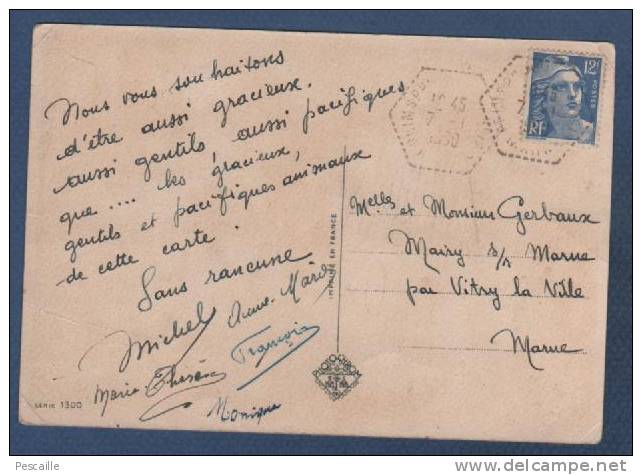 Nous vous souhaitons
d'être aussi gracieux,
aussi gentils, aussi pacifiques
que .... les gracieux,
gentils et pacifiques animaux
de cette carte.
Sans rancune
Michel
Anne-Marie
Marie-Thérèse
François
Monique
SÉRIE 1300
IMPRIMÉ EN FRANCE
12F
POSTES
RF
12 45
1950
Melles et Monsieur Gerbaux
Mairy s/n Marne
par Vitry la Ville
Marne
Pescaille
delcampe.net